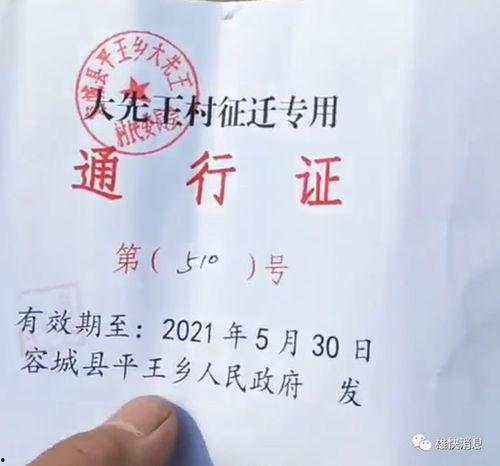 容城县平王乡大先王
村民委员会
大先王村征迁专用
通行证
第(510)号
有效期至：2021年5月30日
容城县平王乡人民政府 发
雄快消息